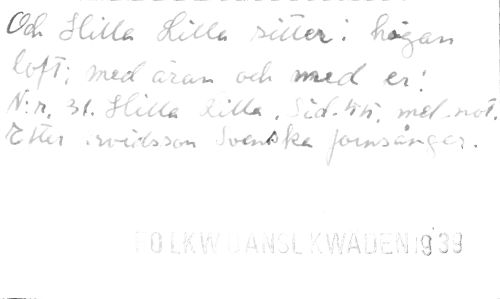 Och Hilla Lilla sitter i högan
loft; med äran och med er!
N:r, 31. Hilla lilla. Sid. 44, med not.
Efter rvidsson Svenska fornsånger.
FOLKW DANSLKWADEN 1939